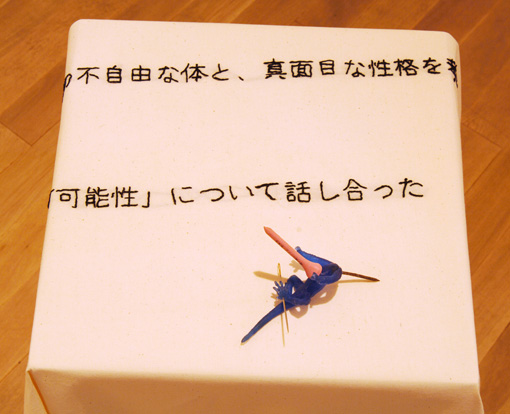 の不自由な体と、真面目な性格を
「可能性」について話し合った